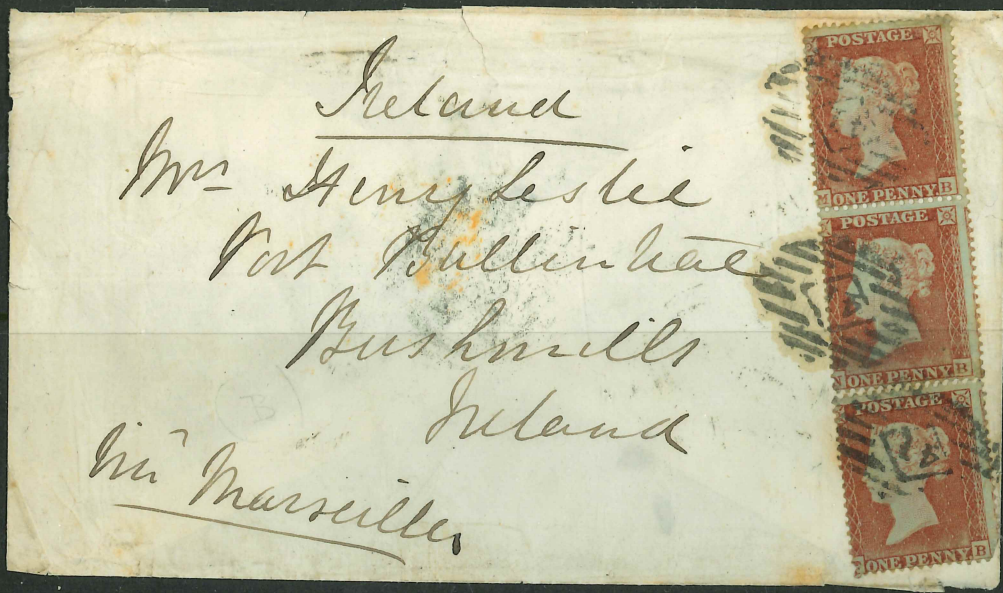 Ireland
Mrs Henry Leslie
Port Ballintrae
Bushmills
Ireland
Via Marseilles
POSTAGE
M ONE PENNY B
POSTAGE
N ONE PENNY B
POSTAGE
ONE PENNY B